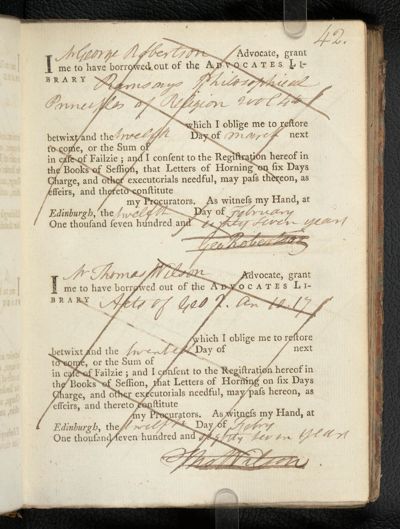 42.
I Mr George Robertson Advocate, grant
me to have borrowed out of the ADVOCATES LI-
BRARY Ramsays Philosophical
Principles of Religion 2 vol 4to
which I oblige me to restore
betwixt and the twelfth Day of march next
to come, or the Sum of
in caſe of Failzie ; and I conſent to the Regiſtration hereof in
the Books of Seſſion, that Letters of Horning on ſix Days
Charge, and other executorials needful, may paſs thereon, as
effeirs, and thereto conſtitute
my Procurators. As witneſs my Hand, at
Edinburgh, the twelfth Day of february
One thouſand ſeven hundred and eighty seven years
Geo Robertson
I Mr Thomas Wilson Advocate, grant
me to have borrowed out of the ADVOCATES LI-
BRARY Acts of Geo 2. An 10.
which I oblige me to reſtore
betwixt and the twelfth Day of next
to come, or the Sum of
in caſe of Failzie ; and I conſent to the Regiſtration hereof in
the Books of Seſſion, that Letters of Horning on ſix Days
Charge, and other executorials needful, may paſs hereon, as
effeirs, and thereto conſtitute
my Procurators. As witneſs my Hand, at
Edinburgh, the twelfth Day of febry
One thouſand ſeven hundred and eighty seven years
Tho Wilson